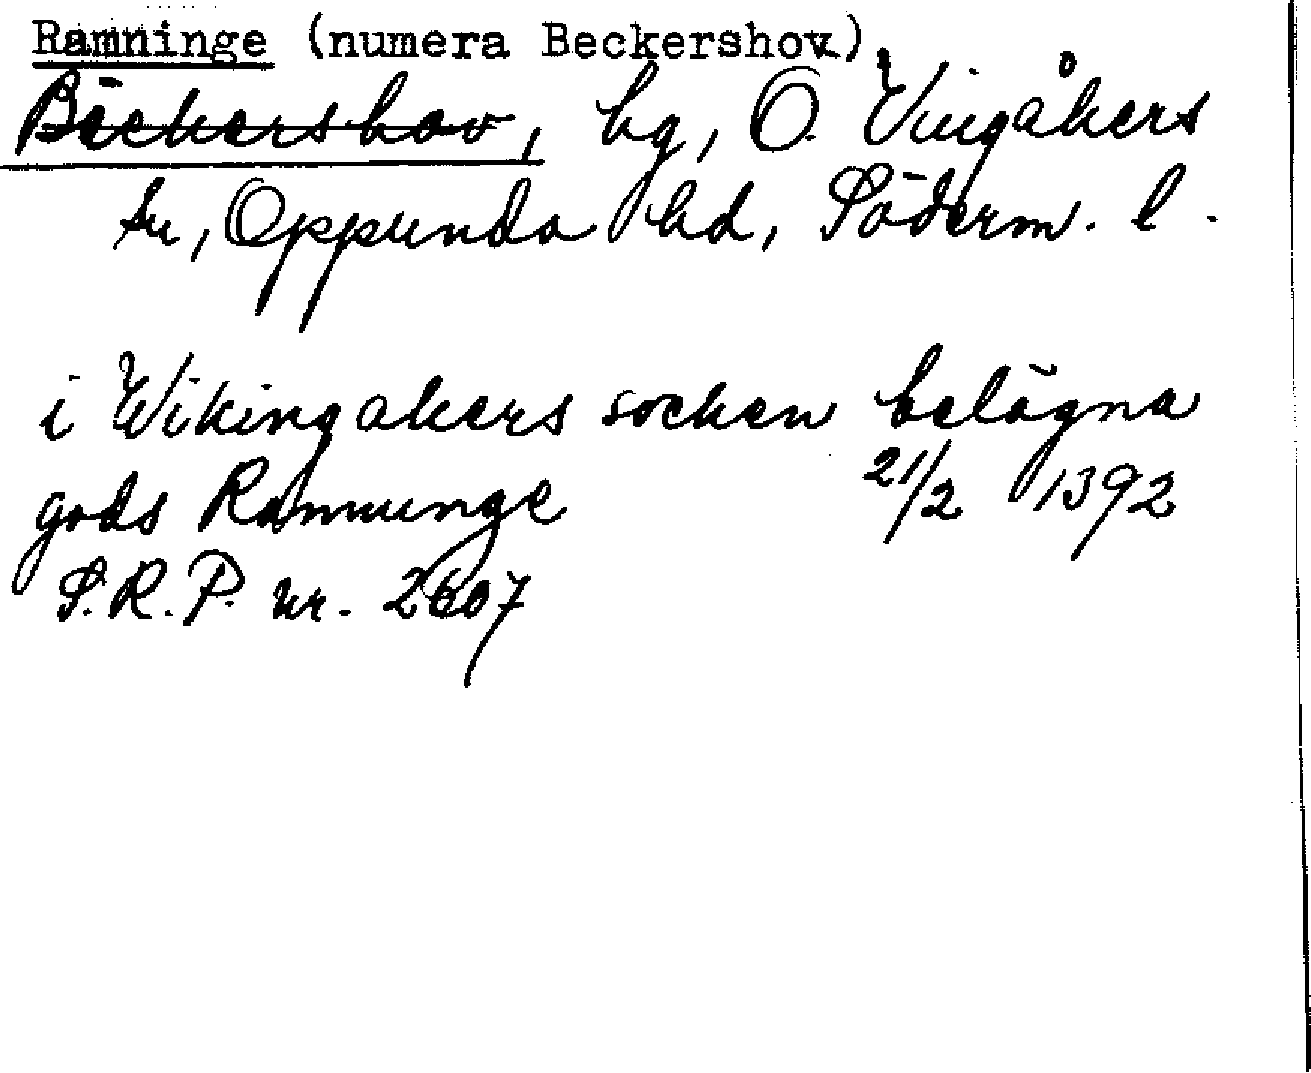 Ramninge (numera Beckershov)
Bäckershov, hg, Ö. Vingåkers
sn, Oppunda hd, Söderm. l.
i Wikingakers socken belägna
gods Ramnunge 21/2 1392
S.R.P. nr. 2607